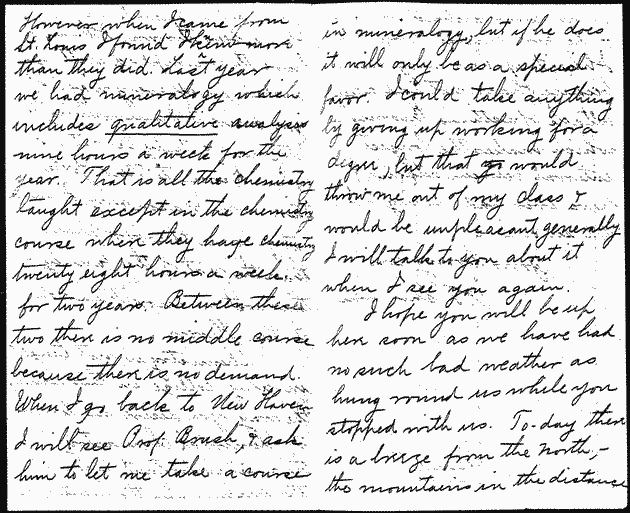 However when I came from
St. Louis I found I knew more
than they did. Last year
we had mineralogy which
includes qualitative analysis
nine hours a week for the
year. That is all the chemistry
taught except in the chemistry
course where they have chemistry
twenty eight hours a week
for two years. Between these
two there is no middle course
because there is no demand.
When I go back to New Haven
I will see Prof. Brush, & ask
him to let me take a course
in mineralogy, but if he does
it will only be as a special
favor. I could take anything
by giving up working for a
degree, but that would
throw me out of my class &
would be unpleasant generally
I will talk to you about it
when I see you again.
I hope you will be up
here soon as we have had
no such bad weather as
hung round us while you
stopped with us. To-day there
is a breeze from the North,-
the mountains in the distance